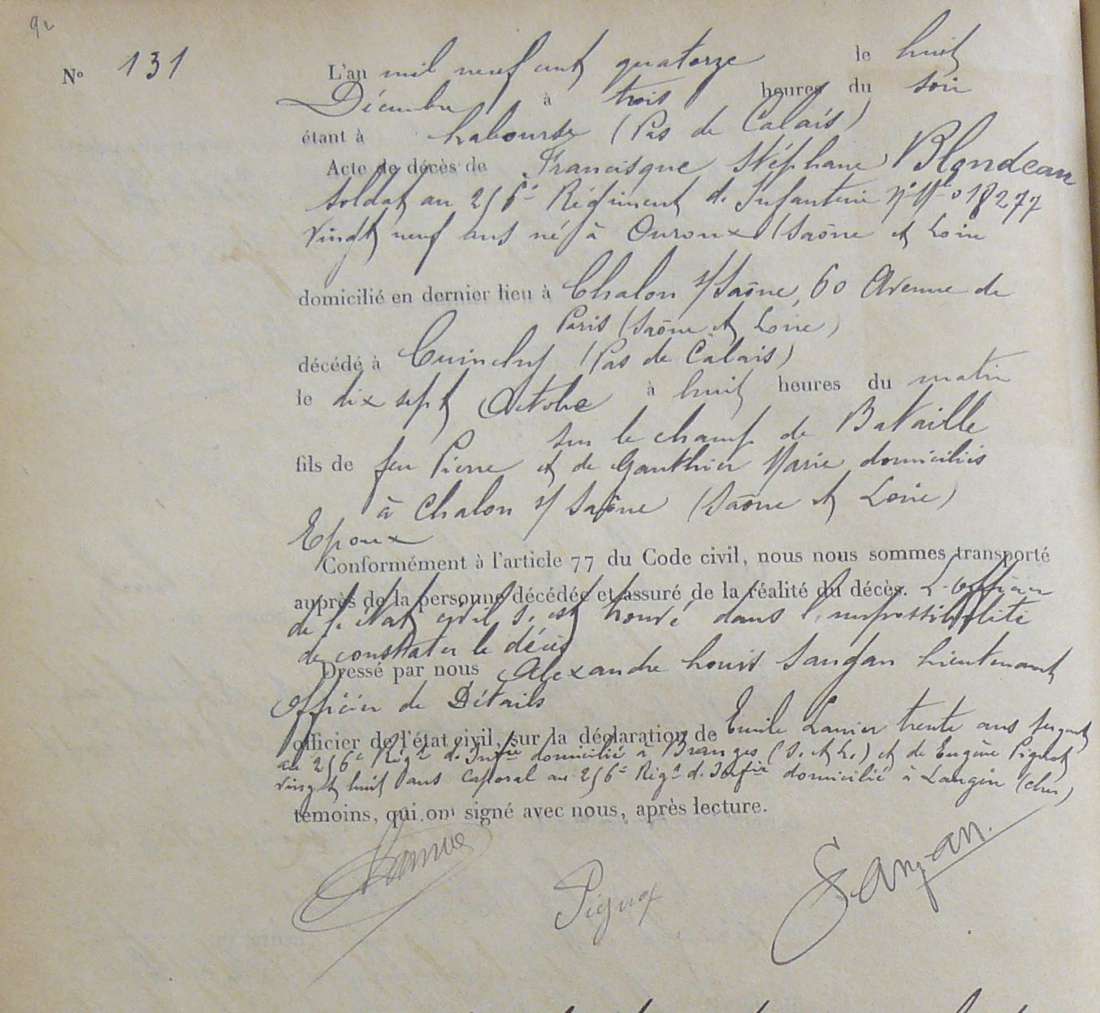 92
N° 131
L'an mil neuf cent quatorze le huit
Décembre à trois heures du soir
étant à Labourse (Pas de Calais)
Acte de décès de Francisque Stéphane Blondeau
soldat au 256e Régiment d'Infanterie n° Mle 018277
vingt neuf ans né à Ouroux (Saône et Loire
domicilié en dernier lieu à Chalon s/Saône, 60 Avenue de
Paris (Saône et Loire)
décédé à Cuinchy (Pas de Calais)
le dix sept Octobre à huit heures du matin
sur le champ de Bataille
fils de feu Pierre et de Gauthier Marie domiciliés
à Chalon s/Saône (Saône et Loire)
Epoux
Conformément à l'article 77 du Code civil, nous nous sommes transporté
auprès de la personne décédée et assuré de la réalité du décès. L'officier
de l'état civil s'est trouvé dans l'impossibilité
de constater le décès
Dressé par nous Alexandre Louis Sangan Lieutenant
officier de Détails
officier de l'état civil, sur la déclaration de Emile Lanier trente ans sergent
au 256e Régt d'Infie domicilié à Branges (S. et L.) et de Eugène Pignot
vingt huit ans caporal au 256e Régt d'Infie domicilié à (Cher)
témoins, qui ont signé avec nous, après lecture.
Pignot Sangan